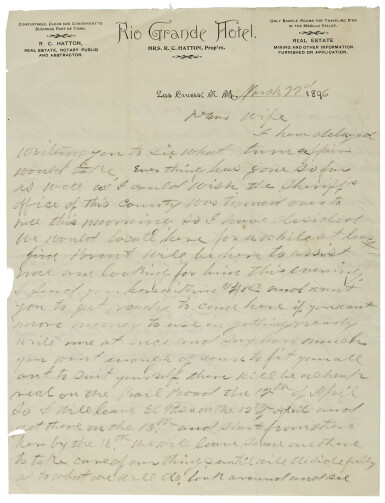 COMFORTABLE, CLEAN AND CONVENIENT TO
BUSINESS PART OF TOWN.
R. C. HATTON,
REAL ESTATE, NOTARY PUBLIC
AND ABSTRACTOR.
Rio Grande Hotel.
MRS. R. C. HATTON, Prop'rs.
ONLY SAMPLE ROOMS FOR TRAVELING MEN
IN THE MESILLA VALLEY.
REAL ESTATE
MINING AND OTHER INFORMATION
FURNISHED ON APPLICATION.
Las Cruces, N. M., March 22d 1896
Dear Wife
I have delayed
writing you to see what turn affairs
would take, Everything has gone so far
as well as I could wish the Sheriff's
office of this County was turned over to
me this morning so I have desided
we would locate here for a while at least
will be here to assist
me am looking for him this evening
I send you herewith and want
you to get ready to come here if you want
more money to use in getting ready
write me at once and say how much
you want enough of course to fit you all
out to suit yourself there will be a cheap
rate on the Rail Road the 12th of April
So I will leave El Paso on the 12th April and
get there on the 13th and start from there
her by the 16th we will leave some one there
to take care of our things until we deside fully
as to what we will do, look around and see